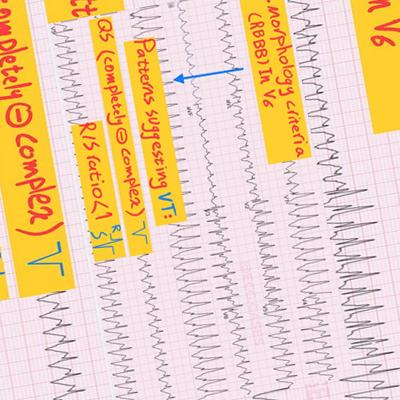 morphology criteria
(RBBB) In V6
Patterns suggesting VT:
QS (completely ⊖ complex)
R/S ratio<1 R S
completely ⊖ complex)
n V6